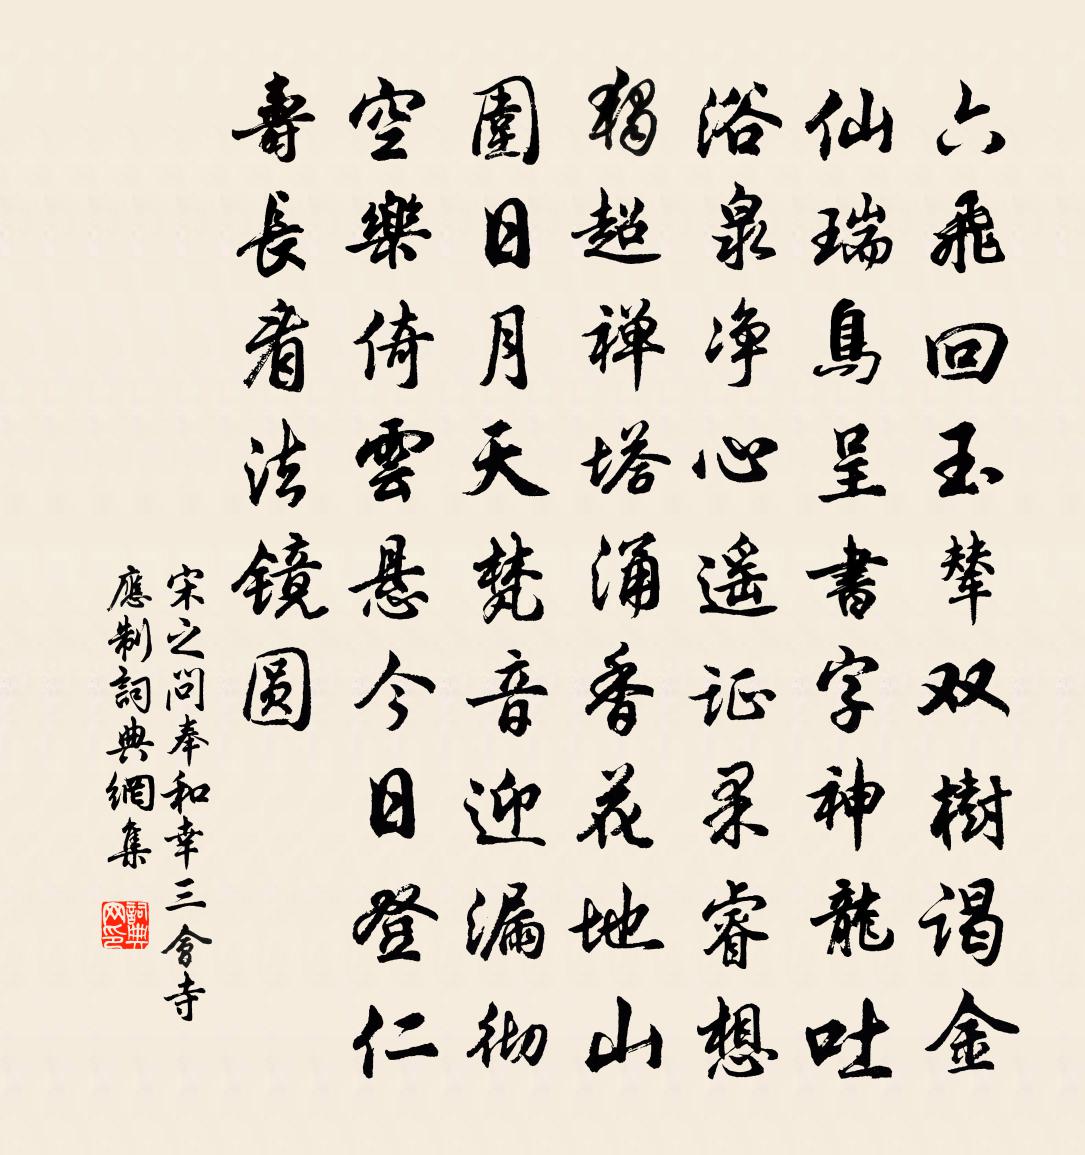 六飛回玉輦双樹謁金
仙瑞鳥呈書字神龍吐
浴泉净心遥証果睿想
独超禅塔涌香花地山
圍日月天梵音迎漏彻
空樂倚雲悬今日登仁
壽長看法镜圆
宋之问奉和幸三會寺
應制詞典網集
詞典网印